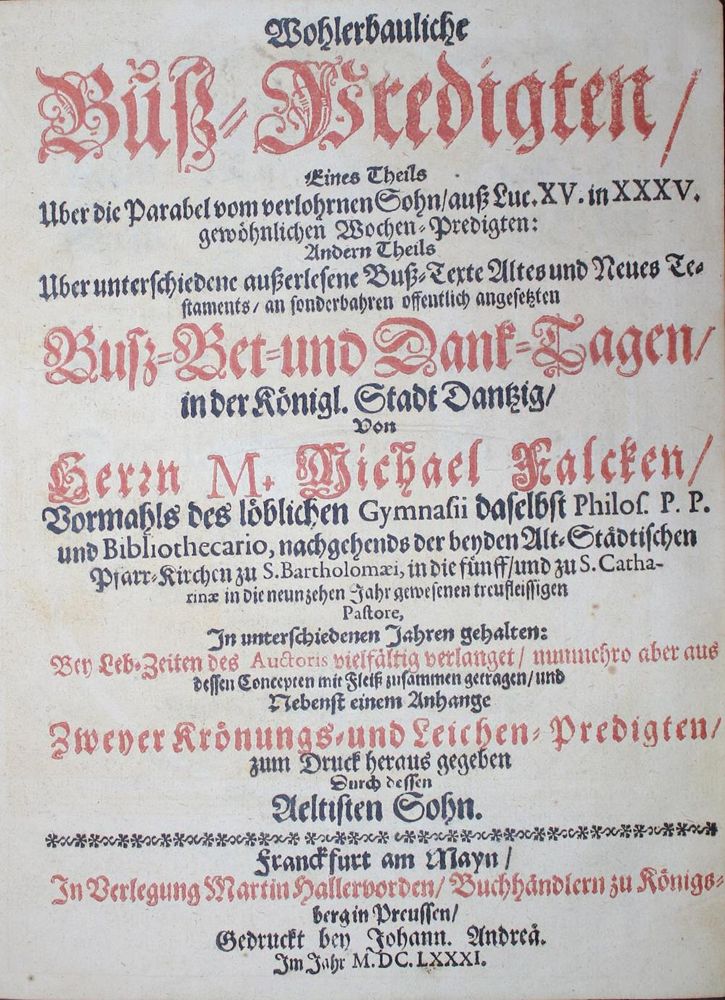 Wohlerbauliche
Büß-Predigten/
Eines Theils
Uber die Parabel vom verlohrnen Sohn/auß Luc. XV. in XXXV.
gewöhnlichen Wochen-Predigten:
Andern Theils
Uber unterschiedene außerlesene Buß-Texte Altes und Neues Te-
staments/ an sonderbahren offentlich angesetzten
Busz-Bet-und Dank-Tagen/
in der Königl. Stadt Dantzig/
Von
Herrn M. Michael Falcken/
Vormahls des löblichen Gymnasii daselbst Philos. P. P.
und Bibliothecario, nachgehends der beyden Alt-Städtischen
Pfarr-Kirchen zu S. Bartholomæi, in die fünff/und zu S. Catha-
rinæ in die neunzehen Jahr gewesenen treufleissigen
Pastore,
In unterschiedenen Jahren gehalten:
Bey Leb-Zeiten des Auctoris vielfältig verlanget/ nunmehro aber aus
dessen Concepten mit Fleiß zusammen getragen/und
Nebenst einem Anhange
Zweyer Krönungs-und Leichen-Predigten/
zum Druck heraus gegeben
Durch dessen
Aeltisten Sohn.
Franckfurt am Mayn/
In Verlegung Martin Hallervorden/ Buchhändlern zu Königs-
berg in Preussen/
Gedruckt bey Johann. Andreä.
Im Jahr M.DC.LXXXI.